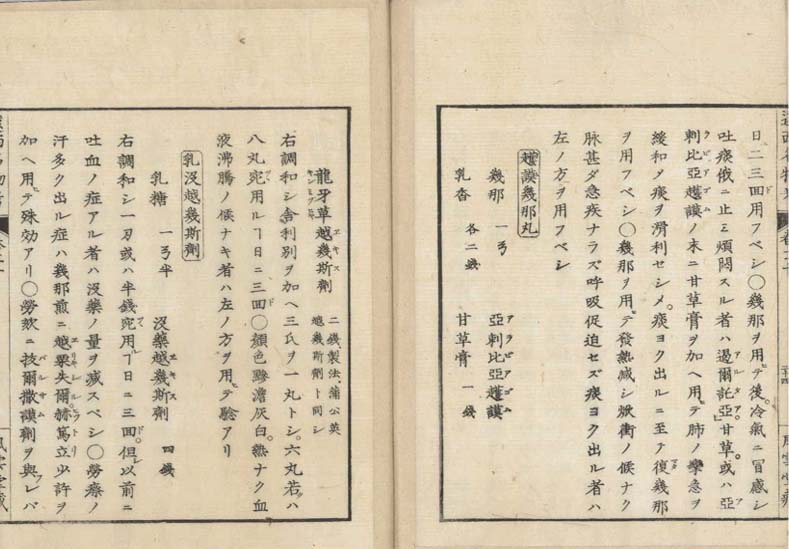 日二三回用フベシ〇幾那ヲ用テ後。冷氣ニ冒感シ
吐痰俄ニ止ミ煩悶スル者ハ過爾託亞甘草。或ハ亞
刺比亞越謨ノ末ニ甘草膏ヲ加ヘ用テ肺ノ攣急ヲ
緩和メ痰ヲ滑利セシメ。痰ヨク出ルニ至テ復幾那
ヲ用フベシ〇幾那ヲ用テ發熱減シ焮衝ノ候ナク
脉甚ダ急疾ナラズ呼吸促迫セズ痰ヨク出ル者ハ
左ノ方ヲ用フベシ
越謨幾那丸
幾那 一 亞刺比亞越謨
乳香 各二錢 甘草膏 一錢
龍牙草越幾斯劑 二錢製法。蒲公英
越幾斯劑ト同シ
右調和シ舎利別ヲ加ヘ三氏ヲ一丸トシ。六丸若ハ
八丸宛用ルヿ日ニ三回〇顔色黲澹灰白。熱ナク血
液沸騰ノ候ナキ者ハ左ノ方ヲ用テ驗アリ
乳没越幾斯劑
乳糖 一半 没藥越幾斯劑 四錢
右調和シ一刃或ハ半錢宛用ルヿ日ニ三回。但以前ニ
吐血ノ症アル者ハ没藥ノ量ヲ減スベシ〇勞瘵ノ
汗多ク出ル症ハ幾那煎ニ越栗失爾赫篤立少許ヲ
加ヘ用テ殊効アリ〇勞欬ニ抜爾撒謨劑ヲ與フレバ